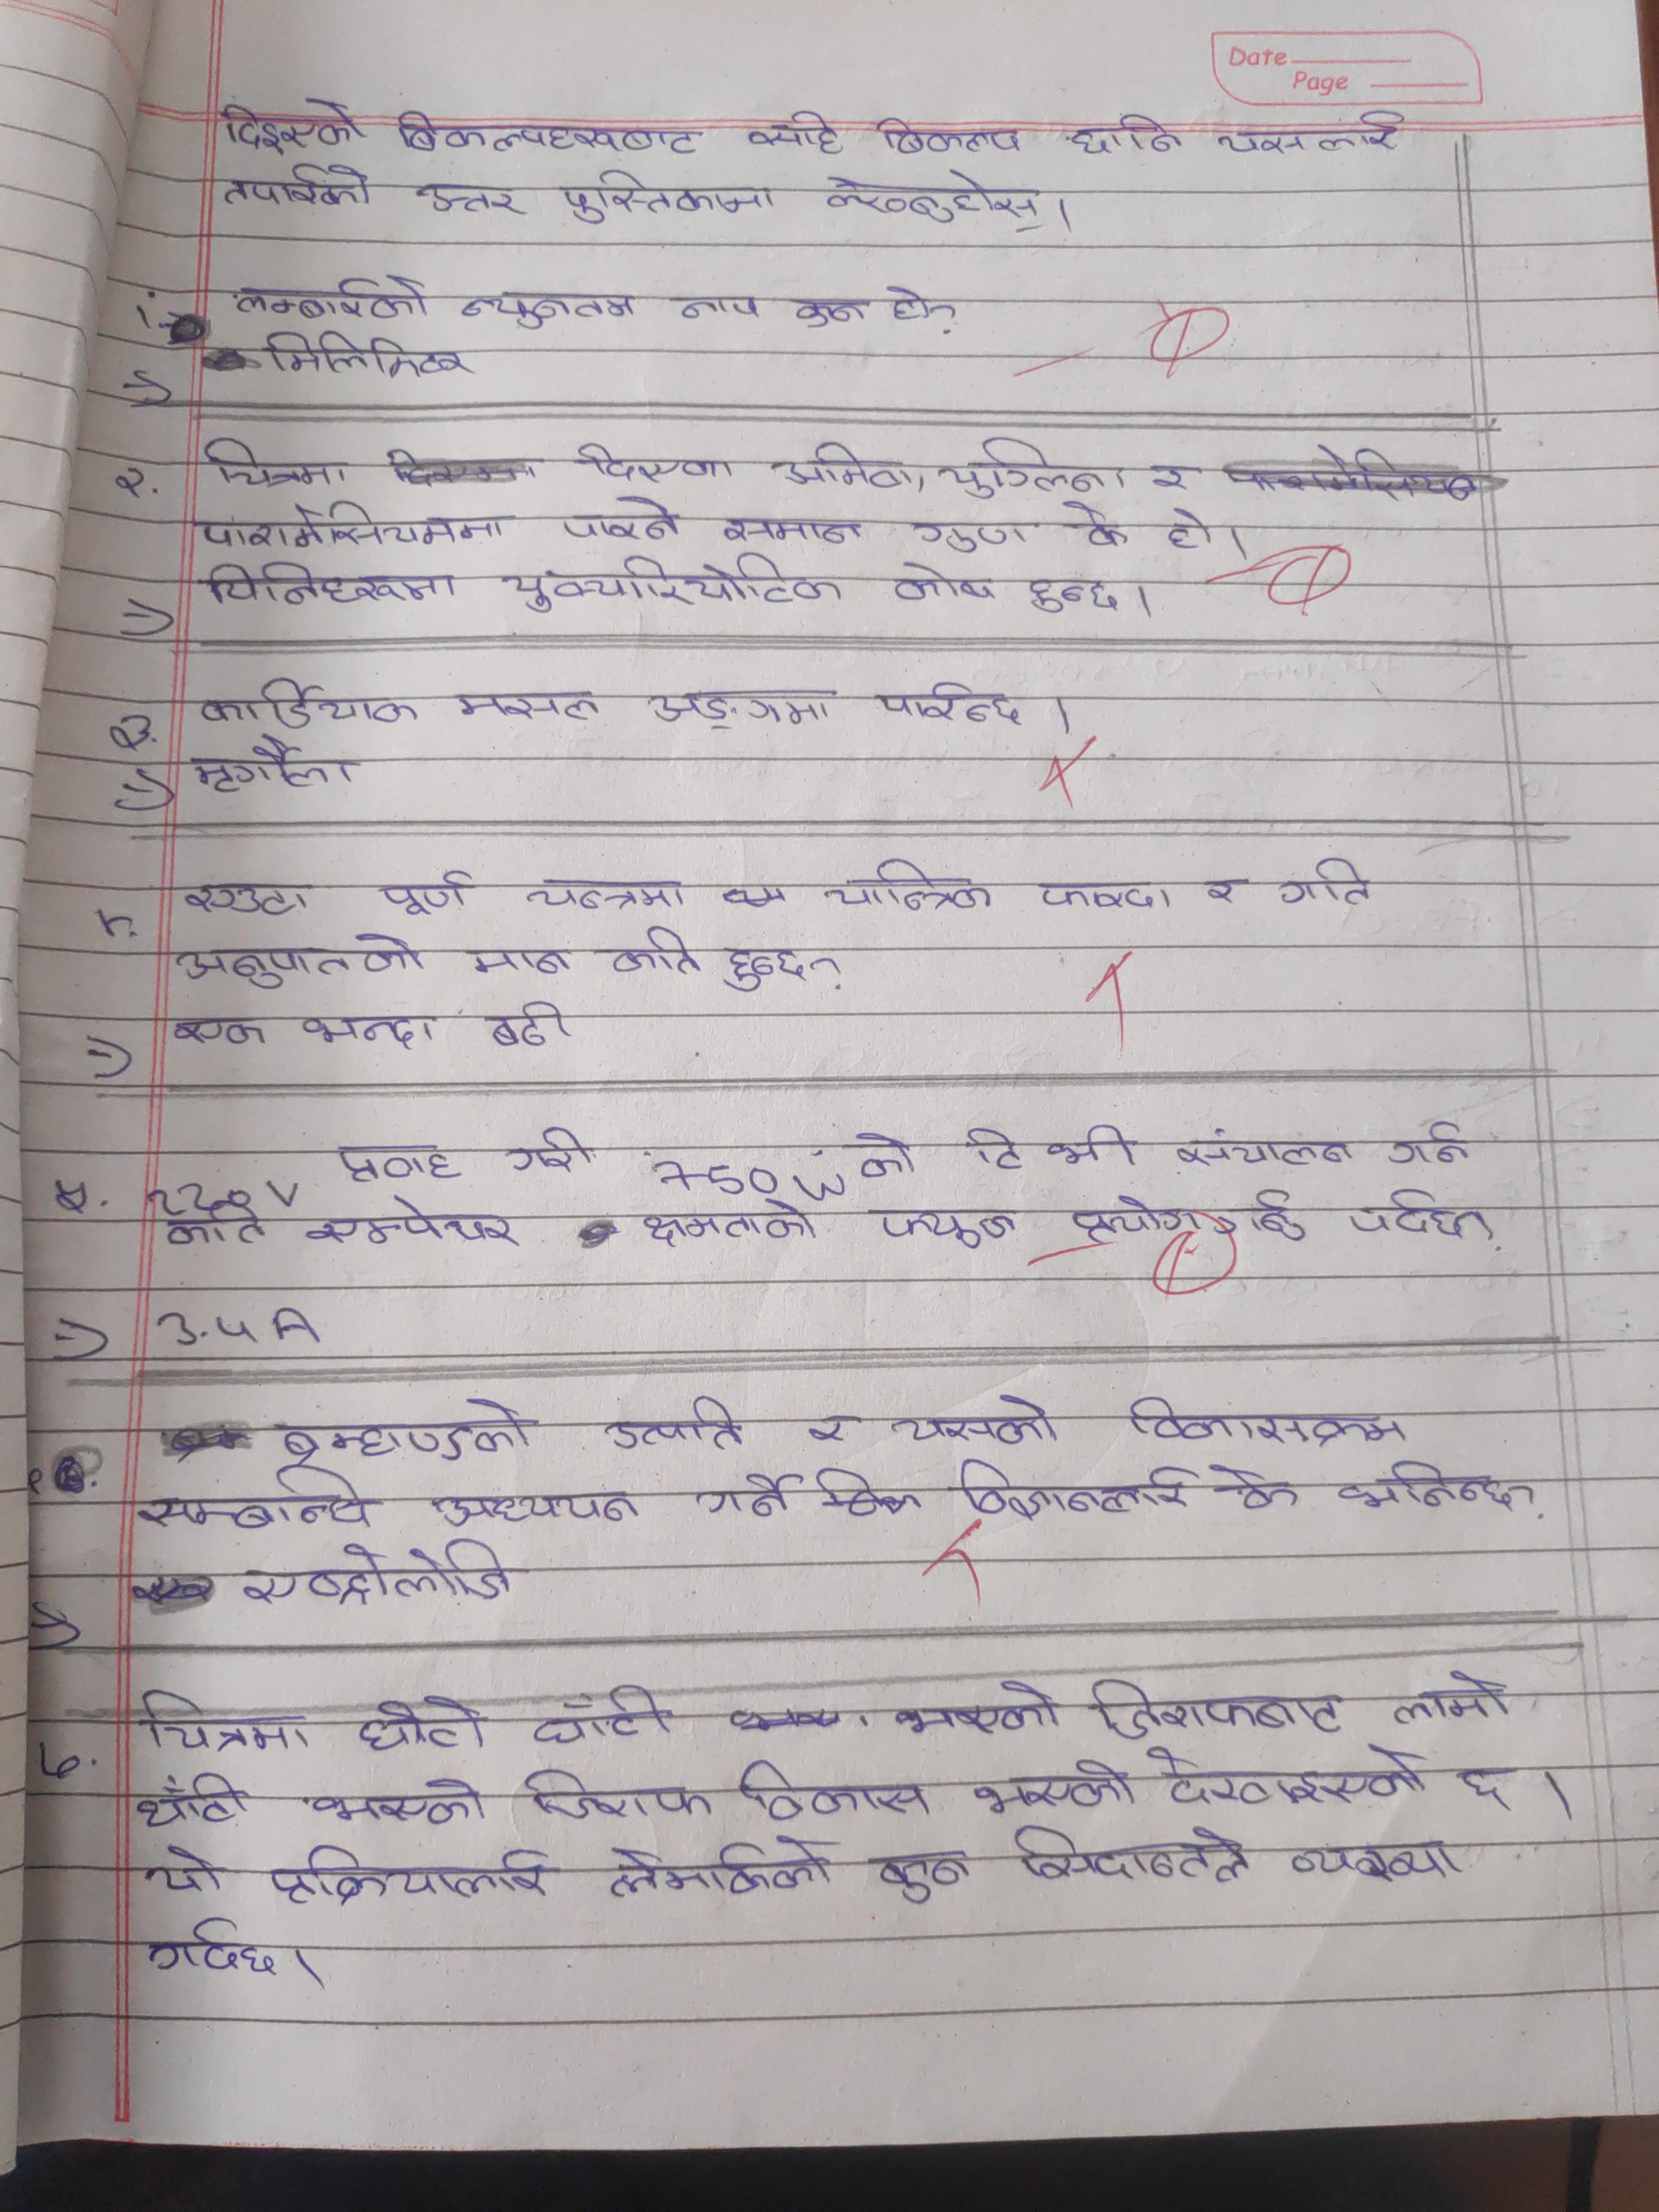 Date
Page
दिइएको बिकल्पहरुबाट सहि बिकल्प छानि यसलाई
तपाईको उत्तर पुस्तिकामा लेख्नुहोस्।
i. लम्बाईको न्युनतम नाप कुन हो?
=> मिलिमिटर
२. चित्रमा दिएका अमिबा, युग्लिना र
पारामेसियममा पाइने समान गुण के हो।
=> यिनिहरुमा युक्यारियोटिक कोष हुन्छ।
३. कार्डियाक मसल अङ्गमा पाईन्छ।
=> मृगौला
४. एउटा पूर्ण यन्त्रमा यान्त्रिक फाइदा र गति
अनुपातको मान कति हुन्छ?
=> एक भन्दा बढी
५. 220V प्रवाह गरी 750W को टि भी संचालन गर्न
कति एम्पेयर क्षमताको फ्युज प्रयोग गर्नु पर्दछ?
=> ३.५ A
६. ब्रम्हाण्डको उत्पति र यसको विकासक्रम
सम्बन्धि अध्ययन गर्ने विज्ञानलाई के भनिन्छ?
=> एस्ट्रोलोजि
७. चित्रमा छोटो घाँटी भएको जिराफबाट लामो
घाँटी भएको जिराफ विकास भएको देखाइएको छ।
यो प्रक्रियालाई लेमार्कको कुन सिदान्तले व्यख्या
गर्दछ।